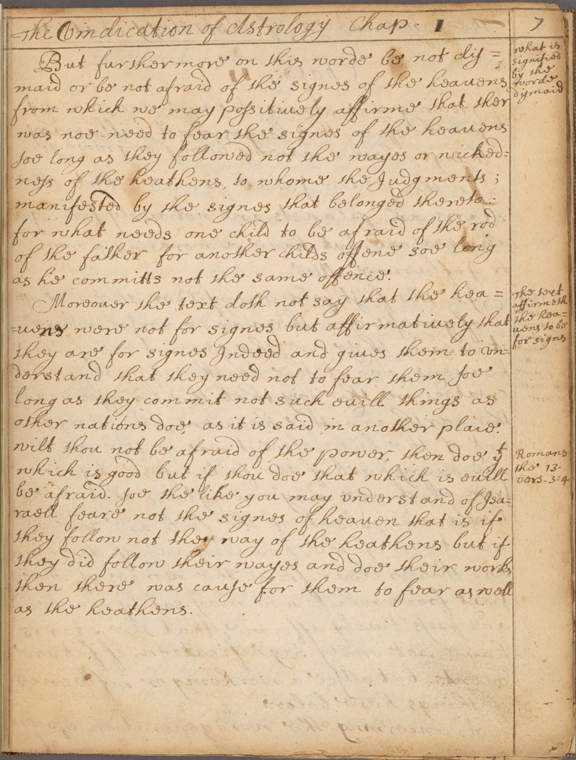 The Vindication of Astrology Chap. 1
7
But furthermore on this worde be not dis=
maid or be not afraid of the signes of the heavens
from which we may possitively affirme that ther
was noe need to fear the signes of the heavens
soe long as they followed not the wayes or wicked=
ness of the heathens, to whome the Judgments;
manifested by the signes that belonged thereto:
for what needs one child to be afraid of the rod
of the father for another childs offene soe long
as he committs not the same offence.
Moreover the text doth not say that the hea=
=uens were not for signes but affirmatively that
they are for signes Indeed and giues them to vn=
derstand that they need not to fear them soe
long as they commit not such euill things as
other nations doe, as it is said in another place.
wilt thou not be afraid of the power, then doe yt
which is good but if thou doe that which is euill
be afraid. soe the like you may vnderstand of Jsa=
raell feare not the signes of heaven that is if
they follow not they way of the heathens but if
they did follow their wayes and doe their works
then there was cause for them to fear as well
as the heathens.
what is
signified
by the
worde
dismaid
The text
affirmeth
the hea=
uens to be
for signs
Romans
the 13-
vers. 3:4